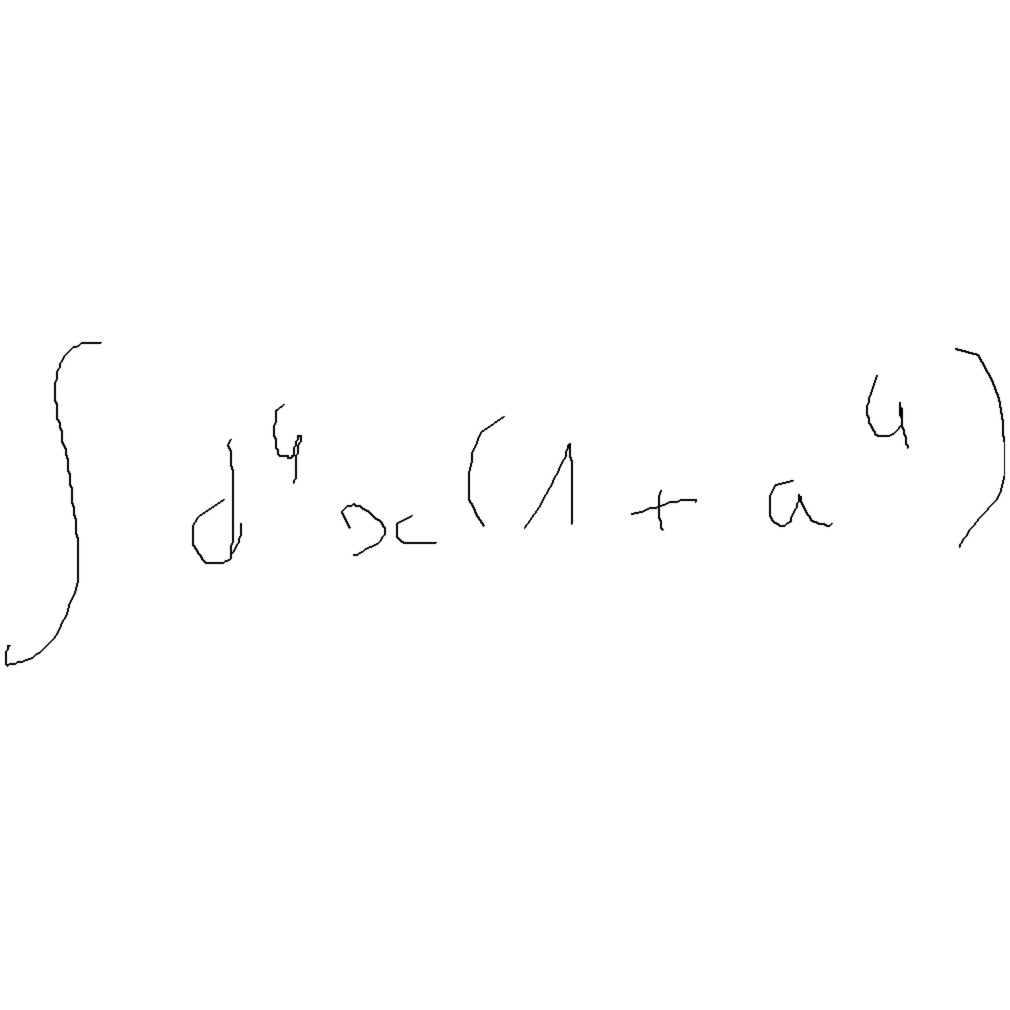 ∫ d⁴x (1 + a⁴)